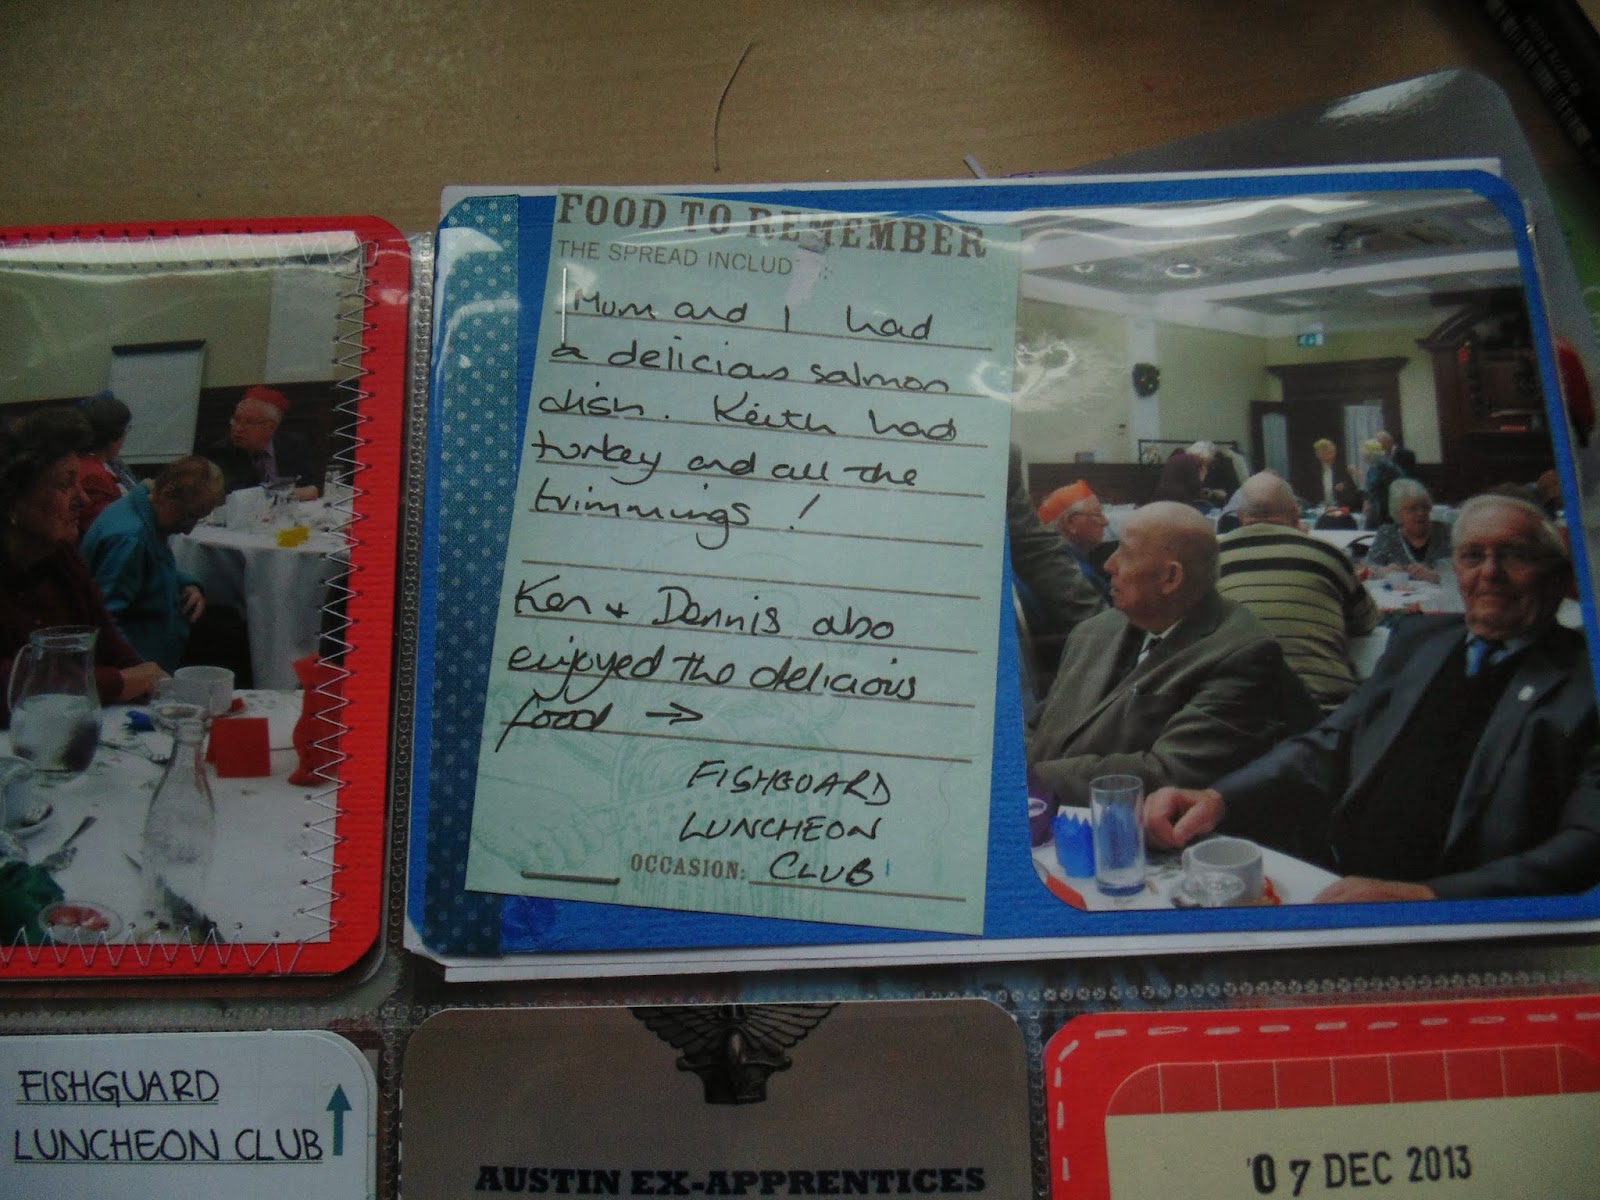 FOOD TO REMEMBER
THE SPREAD INCLUD
Mum and I had
a delicious salmon
dish. Keith had
turkey and all the
trimmings!
Ken + Dennis also
enjoyed the delicious
food →
FISHGUARD
LUNCHEON
OCCASION: CLUB
FISHGUARD
LUNCHEON CLUB
AUSTIN EX-APPRENTICES
07 DEC 2013